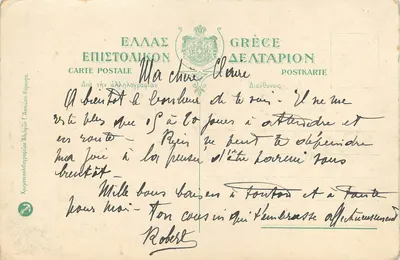 ΕΛΛΑΣ GRÈCE
ΕΠΙΣΤΟΛΙΚΟΝ ΔΕΛΤΑΡΙΟΝ
CARTE POSTALE POSTKARTE
Διὰ τὴν ἀλληλογραφίαν Διεύθυνσις
Ma chère Claire
A bientôt le bonheur de te voir. Il ne me
reste plus que 15 à 20 jours à attendre et
en route. Rien ne peut te dépeindre
ma joie à la pensée d'être parmi vous
bientôt.
Mille bons baisers à tonton et à tante
pour moi. Ton cousin qui t'embrasse affectueusement
Robert